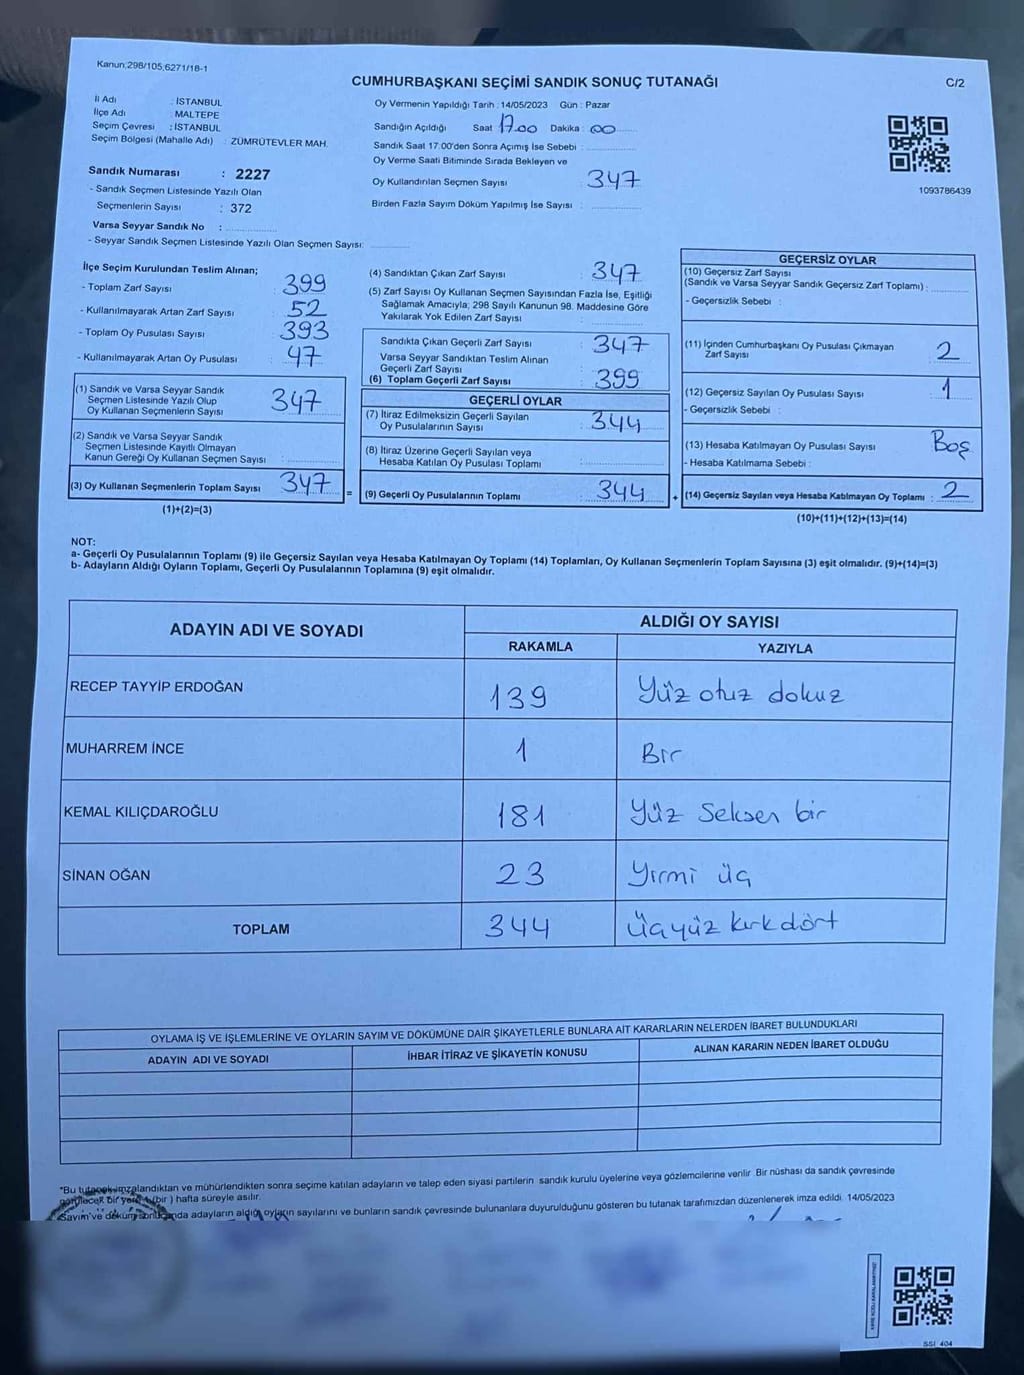 Kanun;298/105,6271/18-1
CUMHURBAŞKANI SEÇİMİ SANDIK SONUÇ TUTANAĞI
C/2
İl Adı : İSTANBUL
İlçe Adı : MALTEPE
Seçim Çevresi : İSTANBUL
Seçim Bölgesi (Mahalle Adı) : ZÜMRÜTEVLER MAH.
Sandık Numarası : 2227
- Sandık Seçmen Listesinde Yazılı Olan
Seçmenlerin Sayısı : 372
Varsa Seyyar Sandık No :
- Seyyar Sandık Seçmen Listesinde Yazılı Olan Seçmen Sayısı:
Oy Vermenin Yapıldığı Tarih : 14/05/2023 Gün : Pazar
Sandığın Açıldığı Saat 17.00 Dakika : 00
Sandık Saat 17.00'den Sonra Açımış İse Sebebi :
Oy Verme Saati Bitiminde Sırada Bekleyen ve
Oy Kullandırılan Seçmen Sayısı : 347
Birden Fazla Sayım Döküm Yapılmış İse Sayısı :
1093786439
İlçe Seçim Kurulundan Teslim Alınan;
- Toplam Zarf Sayısı : 399
- Kullanılmayarak Artan Zarf Sayısı : 52
- Toplam Oy Pusulası Sayısı : 393
- Kullanılmayarak Artan Oy Pusulası : 47
(1) Sandık ve Varsa Seyyar Sandık
Seçmen Listesinde Yazılı Olup
Oy Kullanan Seçmenlerin Sayısı : 347
(2) Sandık ve Varsa Seyyar Sandık
Seçmen Listesinde Kayıtlı Olmayan
Kanun Gereği Oy Kullanan Seçmen Sayısı :
(3) Oy Kullanan Seçmenlerin Toplam Sayısı : 347 =
(1)+(2)=(3)
(4) Sandıktan Çıkan Zarf Sayısı : 347
(5) Zarf Sayısı Oy Kullanan Seçmen Sayısından Fazla İse, Eşitliği
Sağlamak Amacıyla; 298 Sayılı Kanunun 98. Maddesine Göre
Yakılarak Yok Edilen Zarf Sayısı :
Sandıkta Çıkan Geçerli Zarf Sayısı : 347
Varsa Seyyar Sandıktan Teslim Alınan
Geçerli Zarf Sayısı :
(6) Toplam Geçerli Zarf Sayısı : 399
GEÇERLİ OYLAR
(7) İtiraz Edilmeksizin Geçerli Sayılan
Oy Pusulalarının Sayısı : 344
(8) İtiraz Üzerine Geçerli Sayılan veya
Hesaba Katılan Oy Pusulası Toplamı :
(9) Geçerli Oy Pusulalarının Toplamı : 344 +
GEÇERSİZ OYLAR
(10) Geçersiz Zarf Sayısı
(Sandık ve Varsa Seyyar Sandık Geçersiz Zarf Toplamı) :
- Geçersizlik Sebebi :
(11) İçinden Cumhurbaşkanı Oy Pusulası Çıkmayan
Zarf Sayısı : 2
(12) Geçersiz Sayılan Oy Pusulası Sayısı : 1
- Geçersizlik Sebebi :
(13) Hesaba Katılmayan Oy Pusulası Sayısı : Boş
- Hesaba Katılmama Sebebi :
(14) Geçersiz Sayılan veya Hesaba Katılmayan Oy Toplamı : 2
(10)+(11)+(12)+(13)=(14)
NOT:
a- Geçerli Oy Pusulalarının Toplamı (9) ile Geçersiz Sayılan veya Hesaba Katılmayan Oy Toplamı (14) Toplamları, Oy Kullanan Seçmenlerin Toplam Sayısına (3) eşit olmalıdır. (9)+(14)=(3)
b- Adayların Aldığı Oyların Toplamı, Geçerli Oy Pusulalarının Toplamına (9) eşit olmalıdır.
ADAYIN ADI VE SOYADI
ALDIĞI OY SAYISI
RAKAMLA YAZIYLA
RECEP TAYYİP ERDOĞAN 139 Yüz otuz dokuz
MUHARREM İNCE 1 Bir
KEMAL KILIÇDAROĞLU 181 Yüz Seksen bir
SİNAN OĞAN 23 Yirmi üç
TOPLAM 344 Üçyüz kırk dört
OYLAMA İŞ VE İŞLEMLERİNE VE OYLARIN SAYIM VE DÖKÜMÜNE DAİR ŞİKAYETLERLE BUNLARA AİT KARARLARIN NELERDEN İBARET BULUNDUKLARI
ADAYIN ADI VE SOYADI İHBAR İTİRAZ VE ŞİKAYETİN KONUSU ALINAN KARARIN NEDEN İBARET OLDUĞU
*Bu tutanak imzalandıktan ve mühürlendikten sonra seçime katılan adayların ve talep eden siyasi partilerin sandık kurulu üyelerine veya gözlemcilerine verilir .Bir nüshası da sandık çevresinde
görülecek bir yere 1 (bir ) hafta süreyle asılır.
Sayım ve döküm sonucunda adayların aldığı oyların sayılarını ve bunların sandık çevresinde bulunanlara duyurulduğunu gösteren bu tutanak tarafımızdan düzenlenerek imza edildi. 14/05/2023
SSI_404